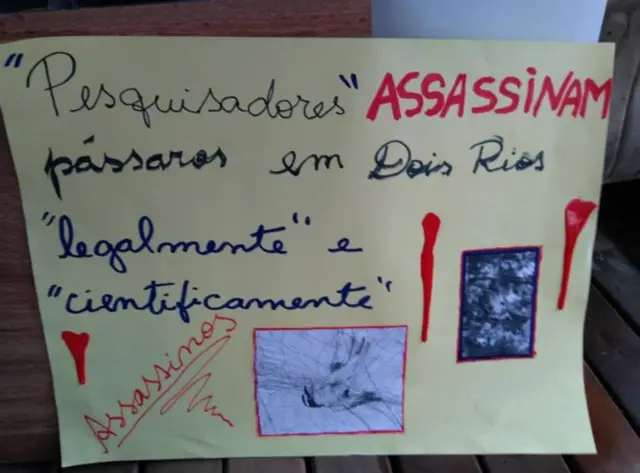 "Pesquisadores" ASSASSiNAM
pássaros em Dois Rios
"legalmente" e
"cientificamente"
Assassinos